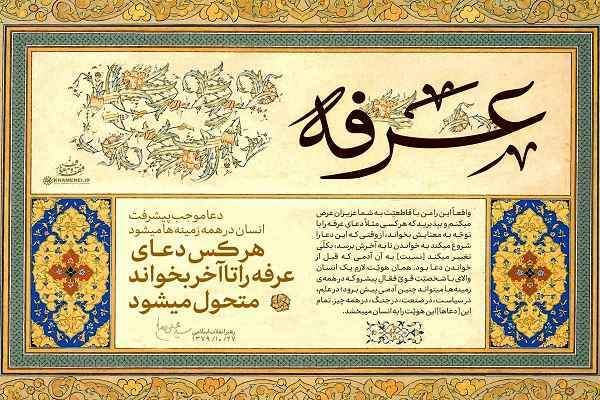 عرفه
KHAMENEI.IR
واقعاً این را من با قاطعیّت به شما عزیزان عرض
میکنم و بپذیرید که هر کسی مثلاً دعای عرفه را با
توجّه به معنایش بخواند، از وقتی که این دعا را
شروع میکند به خواندن تا به آخرش برسد، بکلّی
تغییر میکند [نسبت] به آن آدمی که قبل از
خواندن دعا بود. همان هویّت لازم یک انسان
والای با شخصیّت قویّ فعّال پیشرو که در همه‌ی
زمینه‌ها میتواند چنین آدمی پیش برود؛ در علم،
در سیاست، در صنعت، در جنگ، در همه چیز. تمام
این [دعاها] این هویّت را به انسان میبخشد.
دعا موجب پیشرفت
انسان در همه زمینه‌ها میشود
هر کس دعای
عرفه را تا آخر بخواند
متحول میشود
رهبر انقلاب اسلامی
۱۳۷۹/۱۰/۲۷